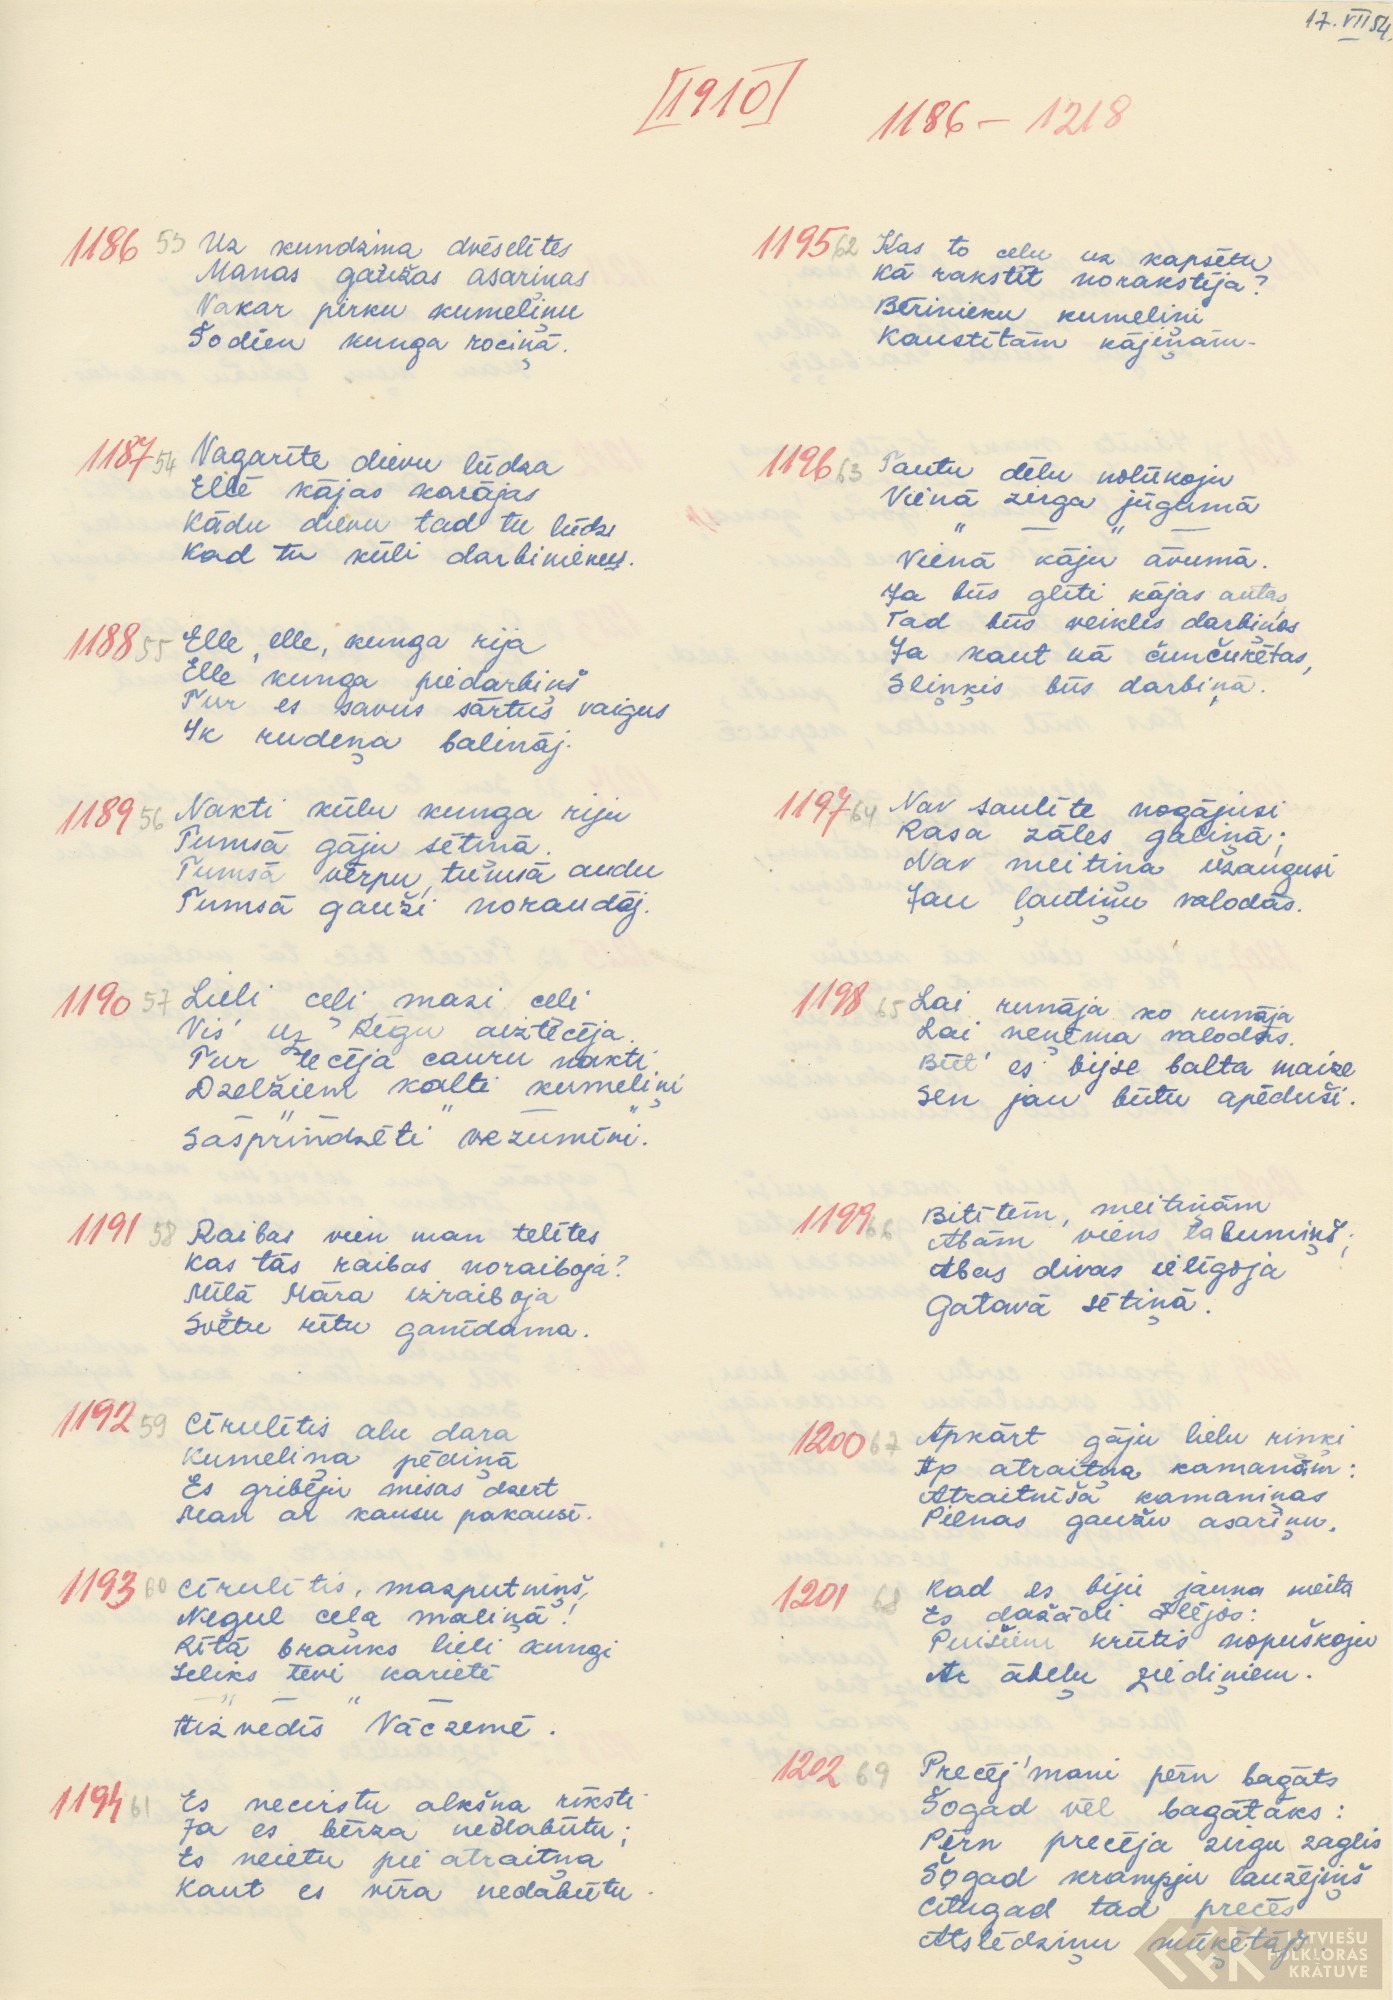 17. VII 54.
[1910]
1186 – 1218
1186 53 Uz kundziņa dvēselītes
Manas gaužas asariņas
Vakar pirku kumeliņu
Šodien kunga rociņā.
1187 54 Vagarīte dievu lūdza
Ellē kājas karājas
Kādu dievu tad tu lūdz
Kad tu kūli darbiniekus.
1188 55 Elle, elle, kunga rija
Elle kunga piedarbiņš
Tur es savus sārtus vaigus
Ik rudeņa balināj.
1189 56 Nakti kūlu kunga riju
Tumsā gāju sētiņā.
Tumsā vērpu, tumsā audu
Tumsā gauži noraudāj.
1190 57 Lieli ceļi mazi ceļi
Vis' uz Rīgu aiztecēja.
Tur tecēja cauru nakti
Dzelžiem kalti kumeliņi
" " "
Sasprindzēti vezumiņi.
1191 58 Raibas vien man telītes
Kas tās raibas noraiboja?
Mīlā Māra izraiboja
Svētu rītu ganīdama.
1192 59 Cīrulītis alu dara
Kumeliņa pēdiņā
Es gribēju misas dzert
Man ar kausu pakausī.
1193 60 Cīrulītis, mazputniņš,
Neguļ ceļa maliņā!
Rītā brauks lieli kungi
Ieliks tevi karietē
" "
Aizvedīs Vāczemē.
1194 61 Es necirstu alkšņa rīksti
Ja es bērza nedabūtu;
Es neietu pie atraitņa
Kaut es vīra nedabūtu.
1195 62 Kas to ceļu uz kapsētu
Kā rakstīt norakstīja?
Bērinieku kumeliņi
Kaustītām kājiņām.
1196 63 Tautu dēlu nolūkoju
Vienā zirga jūgumā
" — " —
Vienā kāju āvumā.
Ja būs glīti kājas autas
Tad būs veikls darbiņos
Ja kaut kā čunčurētas,
Sliņķis būs darbiņā.
1197 64 Nav saulīte nogājusi
Rasa zāles galiņā;
Nav meitiņa uzaugusi
Jau ļautiņu valodās.
1198 65 Lai runāja ko runāja
Lai neņēma valodās.
Būt' es bijse balta maize
Sen jau būtu apēduši.
1199 66 Bitītēm, meitiņām
Abām viens tikumiņš;
Abas divas ielīgoja
Gatavā sētiņā.
1200 67 Apkārt gāju lielu riņķi
Ap atraitņa kamanām:
Atraitnīša kamaniņas
Pilnas gaužu asariņu.
1201 68 Kad es biju jauna meita
Es dažādi ālējos:
Puišiem krūtis nopuškoju
Ar ābeļu ziediņiem.
1202 69 Precēj' mani pērn bagāts
Šogad vēl bagātāks:
Pērn precēja zirgu zaglis
Šogad krampju lauzējiņš
Citugad tad precēs
Atslēdziņu mūķētājs.
LATVIEŠU
FOLKLORAS
KRĀTUVE